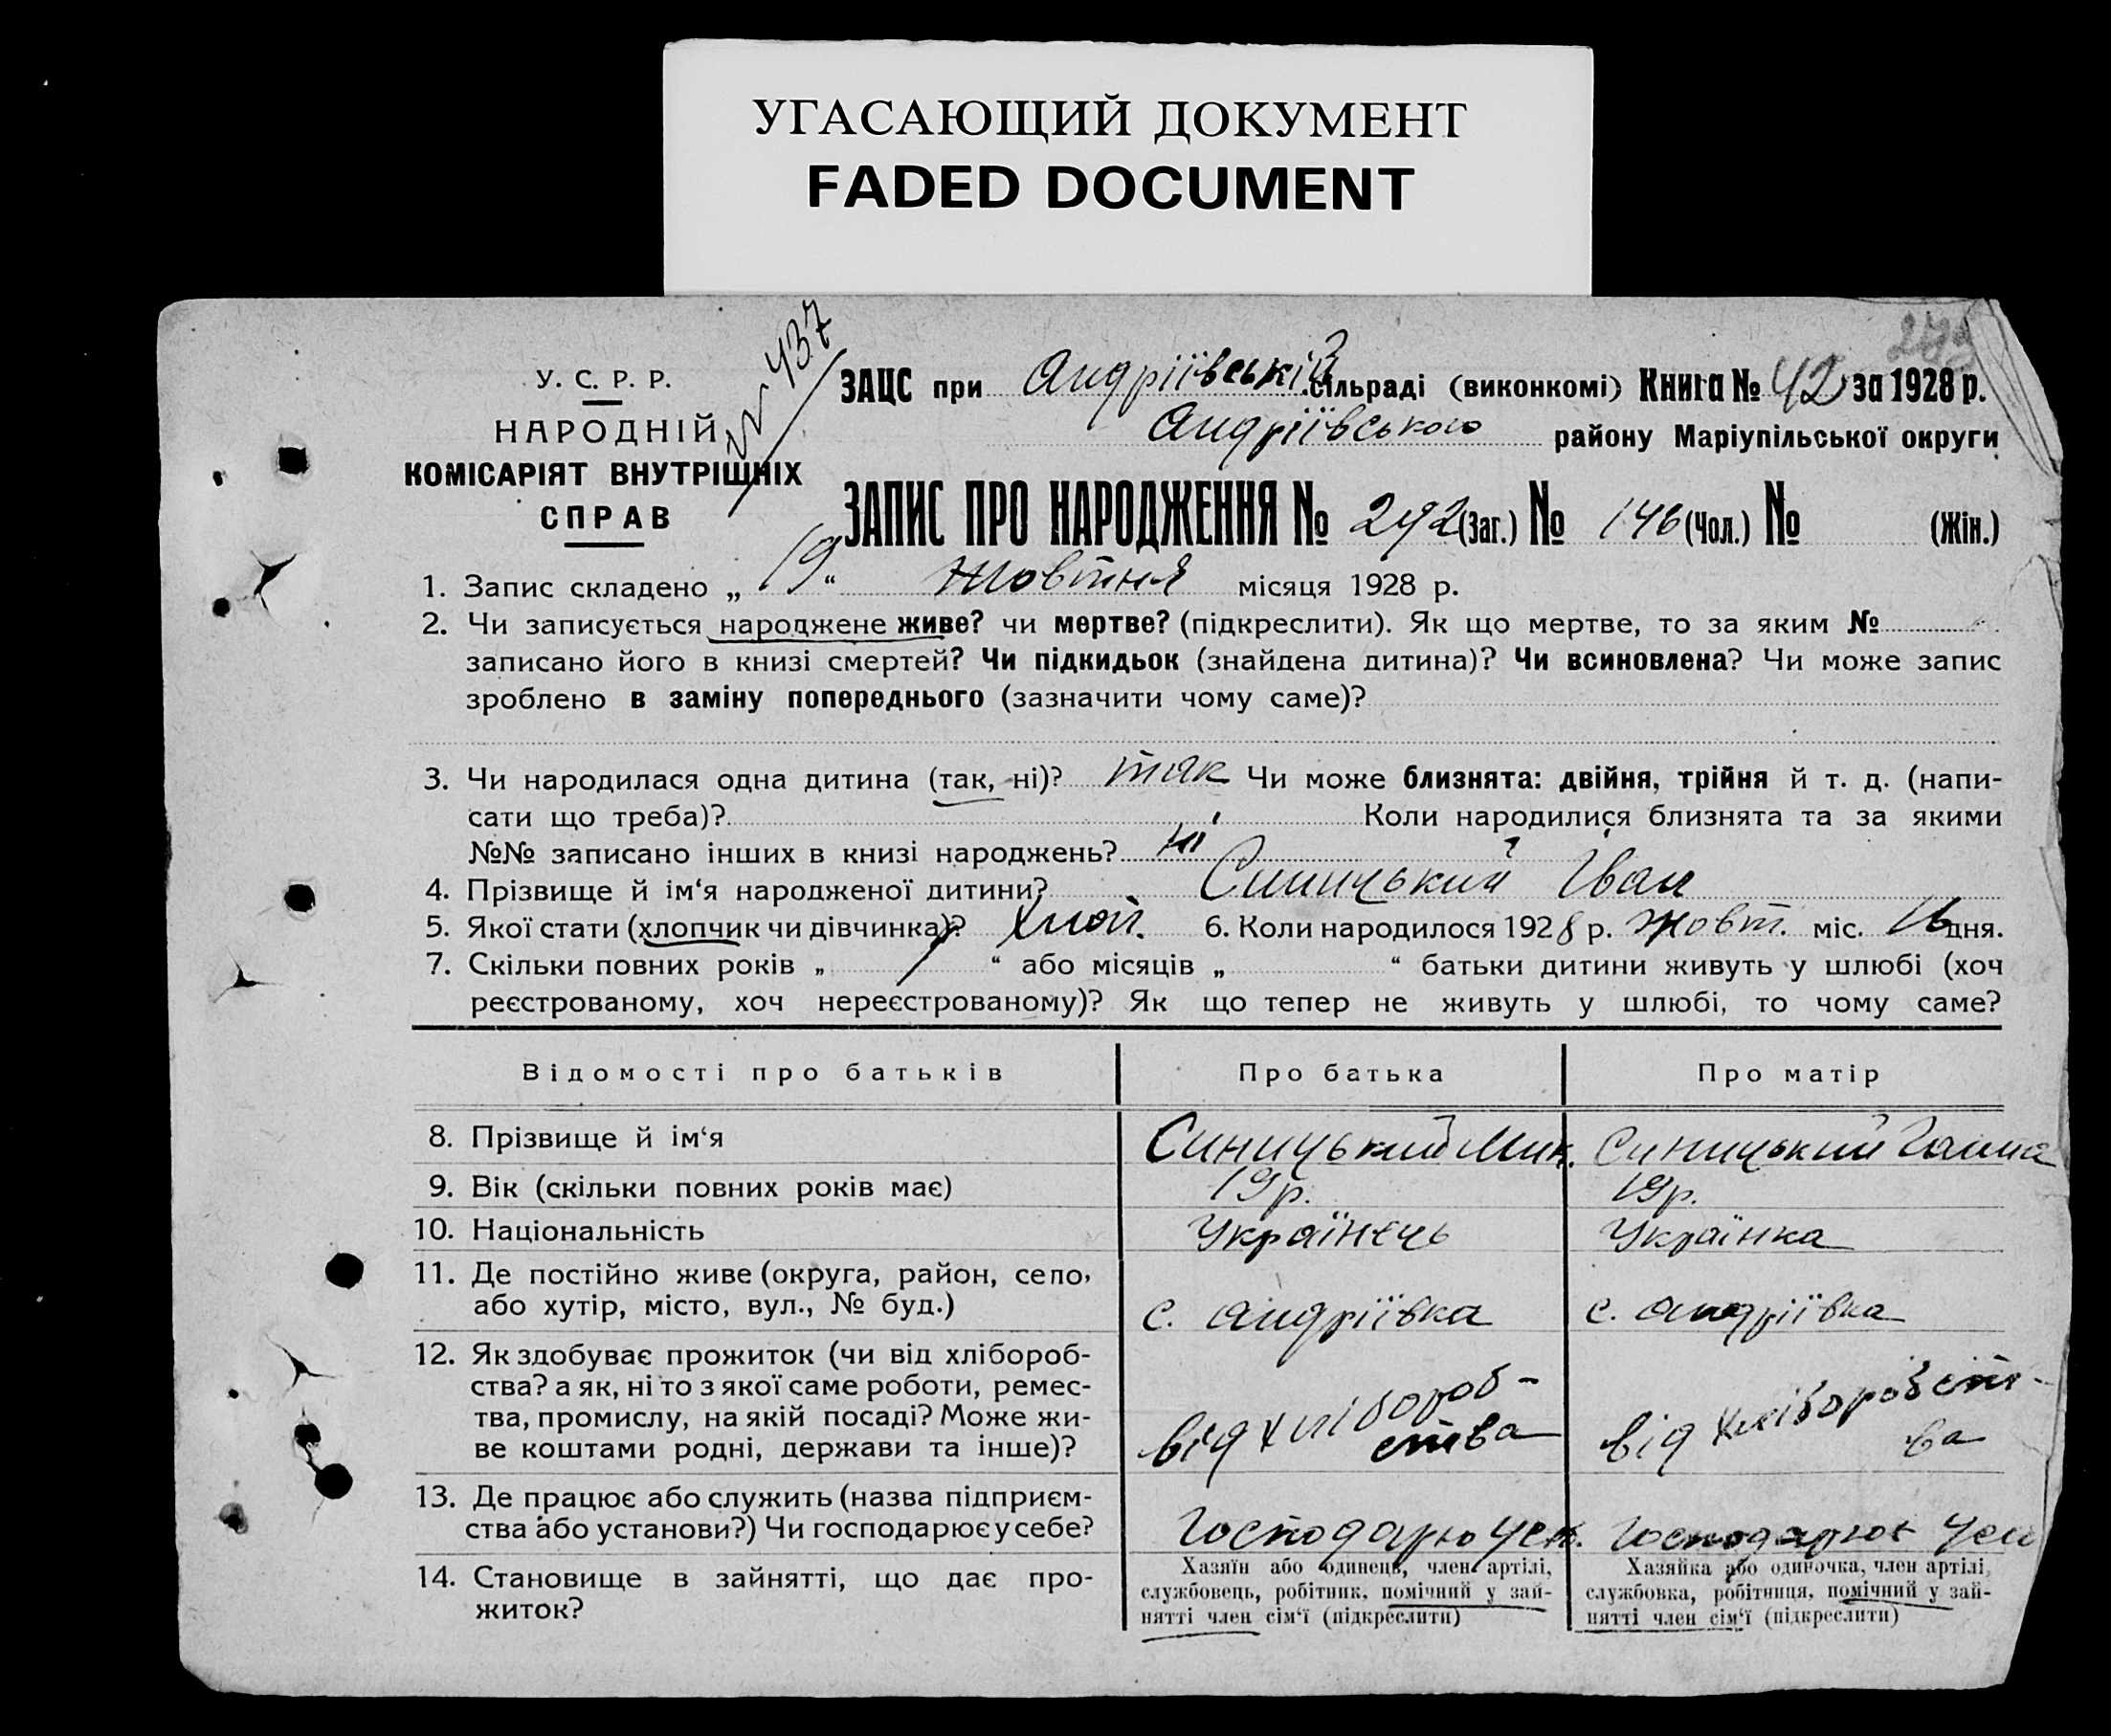 УГАСАЮЩИЙ ДОКУМЕНТ
FADED DOCUMENT
№ 437
У. С. Р. Р.
НАРОДНІЙ
КОМІСАРІЯТ ВНУТРІШНІХ
СПРАВ
ЗАЦС при Андріївській сільраді (виконкомі) Книга № 42 за 1928 р.
Андріївського району Маріупільської округи
ЗАПИС ПРО НАРОДЖЕННЯ № 292 (Заг.) № 146 (Чол.) № (Жін.)
1. Запис складено „ 19 “ Жовтня місяця 1928 р.
2. Чи записується народжене живе? чи мертве? (підкреслити). Як що мертве, то за яким №
записано його в книзі смертей? Чи підкидьок (знайдена дитина)? Чи всиновлена? Чи може запис
зроблено в заміну попереднього (зазначити чому саме)?
3. Чи народилася одна дитина (так, ні)? так Чи може близнята: двійня, трійня й т. д. (напи-
сати що треба)? Коли народилися близнята та за якими
№№ записано інших в книзі народжень? ні
4. Прізвище й ім‘я народженої дитини? Синицький Іван
5. Якої стати (хлопчик чи дівчинка)? хлоп. 6. Коли народилося 1928 р. жовт. міс. 16 дня.
7. Скільки повних років „ “ або місяців „ “ батьки дитини живуть у шлюбі (хоч
реєстрованому, хоч нереєстрованому)? Як що тепер не живуть у шлюбі, то чому саме?
Відомості про батьків Про батька Про матір
8. Прізвище й ім‘я Синицький Мик. Синицький Ганна
9. Вік (скільки повних років має) 19 р. 19 р.
10. Національність Українець Українка
11. Де постійно живе (округа, район, село,
або хутір, місто, вул., № буд.) с. Андріївка с. Андріївка
12. Як здобуває прожиток (чи від хлібороб-
ства? а як, ні то з якої саме роботи, ремес-
тва, промислу, на якій посаді? Може жи-
ве коштами родні, держави та інше)? від хлібороб-
ства від хліборобст-
ва
13. Де працює або служить (назва підприєм-
ства або установи?) Чи господарює у себе? Господарю у себ. Господарює у себ
14. Становище в зайнятті, що дає про-
житок?
Хазяїн або одинець, член артілі,
службовець, робітник, помічний у зай-
нятті член сім‘ї (підкреслити)
Хазяйка або одиночка, член артілі,
службовка, робітниця, помічний у зай-
нятті член сім‘ї (підкреслити)